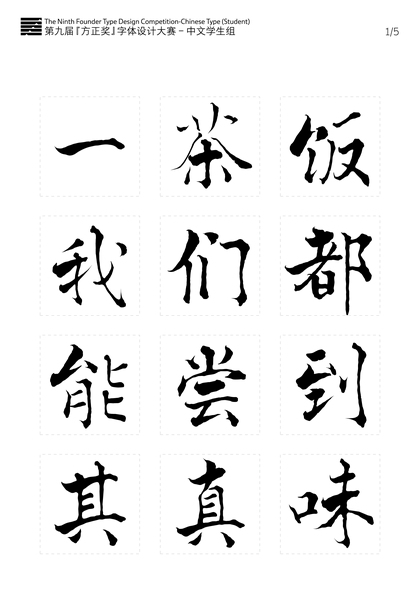 The Ninth Founder Type Design Competition-Chinese Type (Student)
第九届『方正奖』字体设计大赛－中文学生组
1/5
一茶饭
我们都
能尝到
其真味